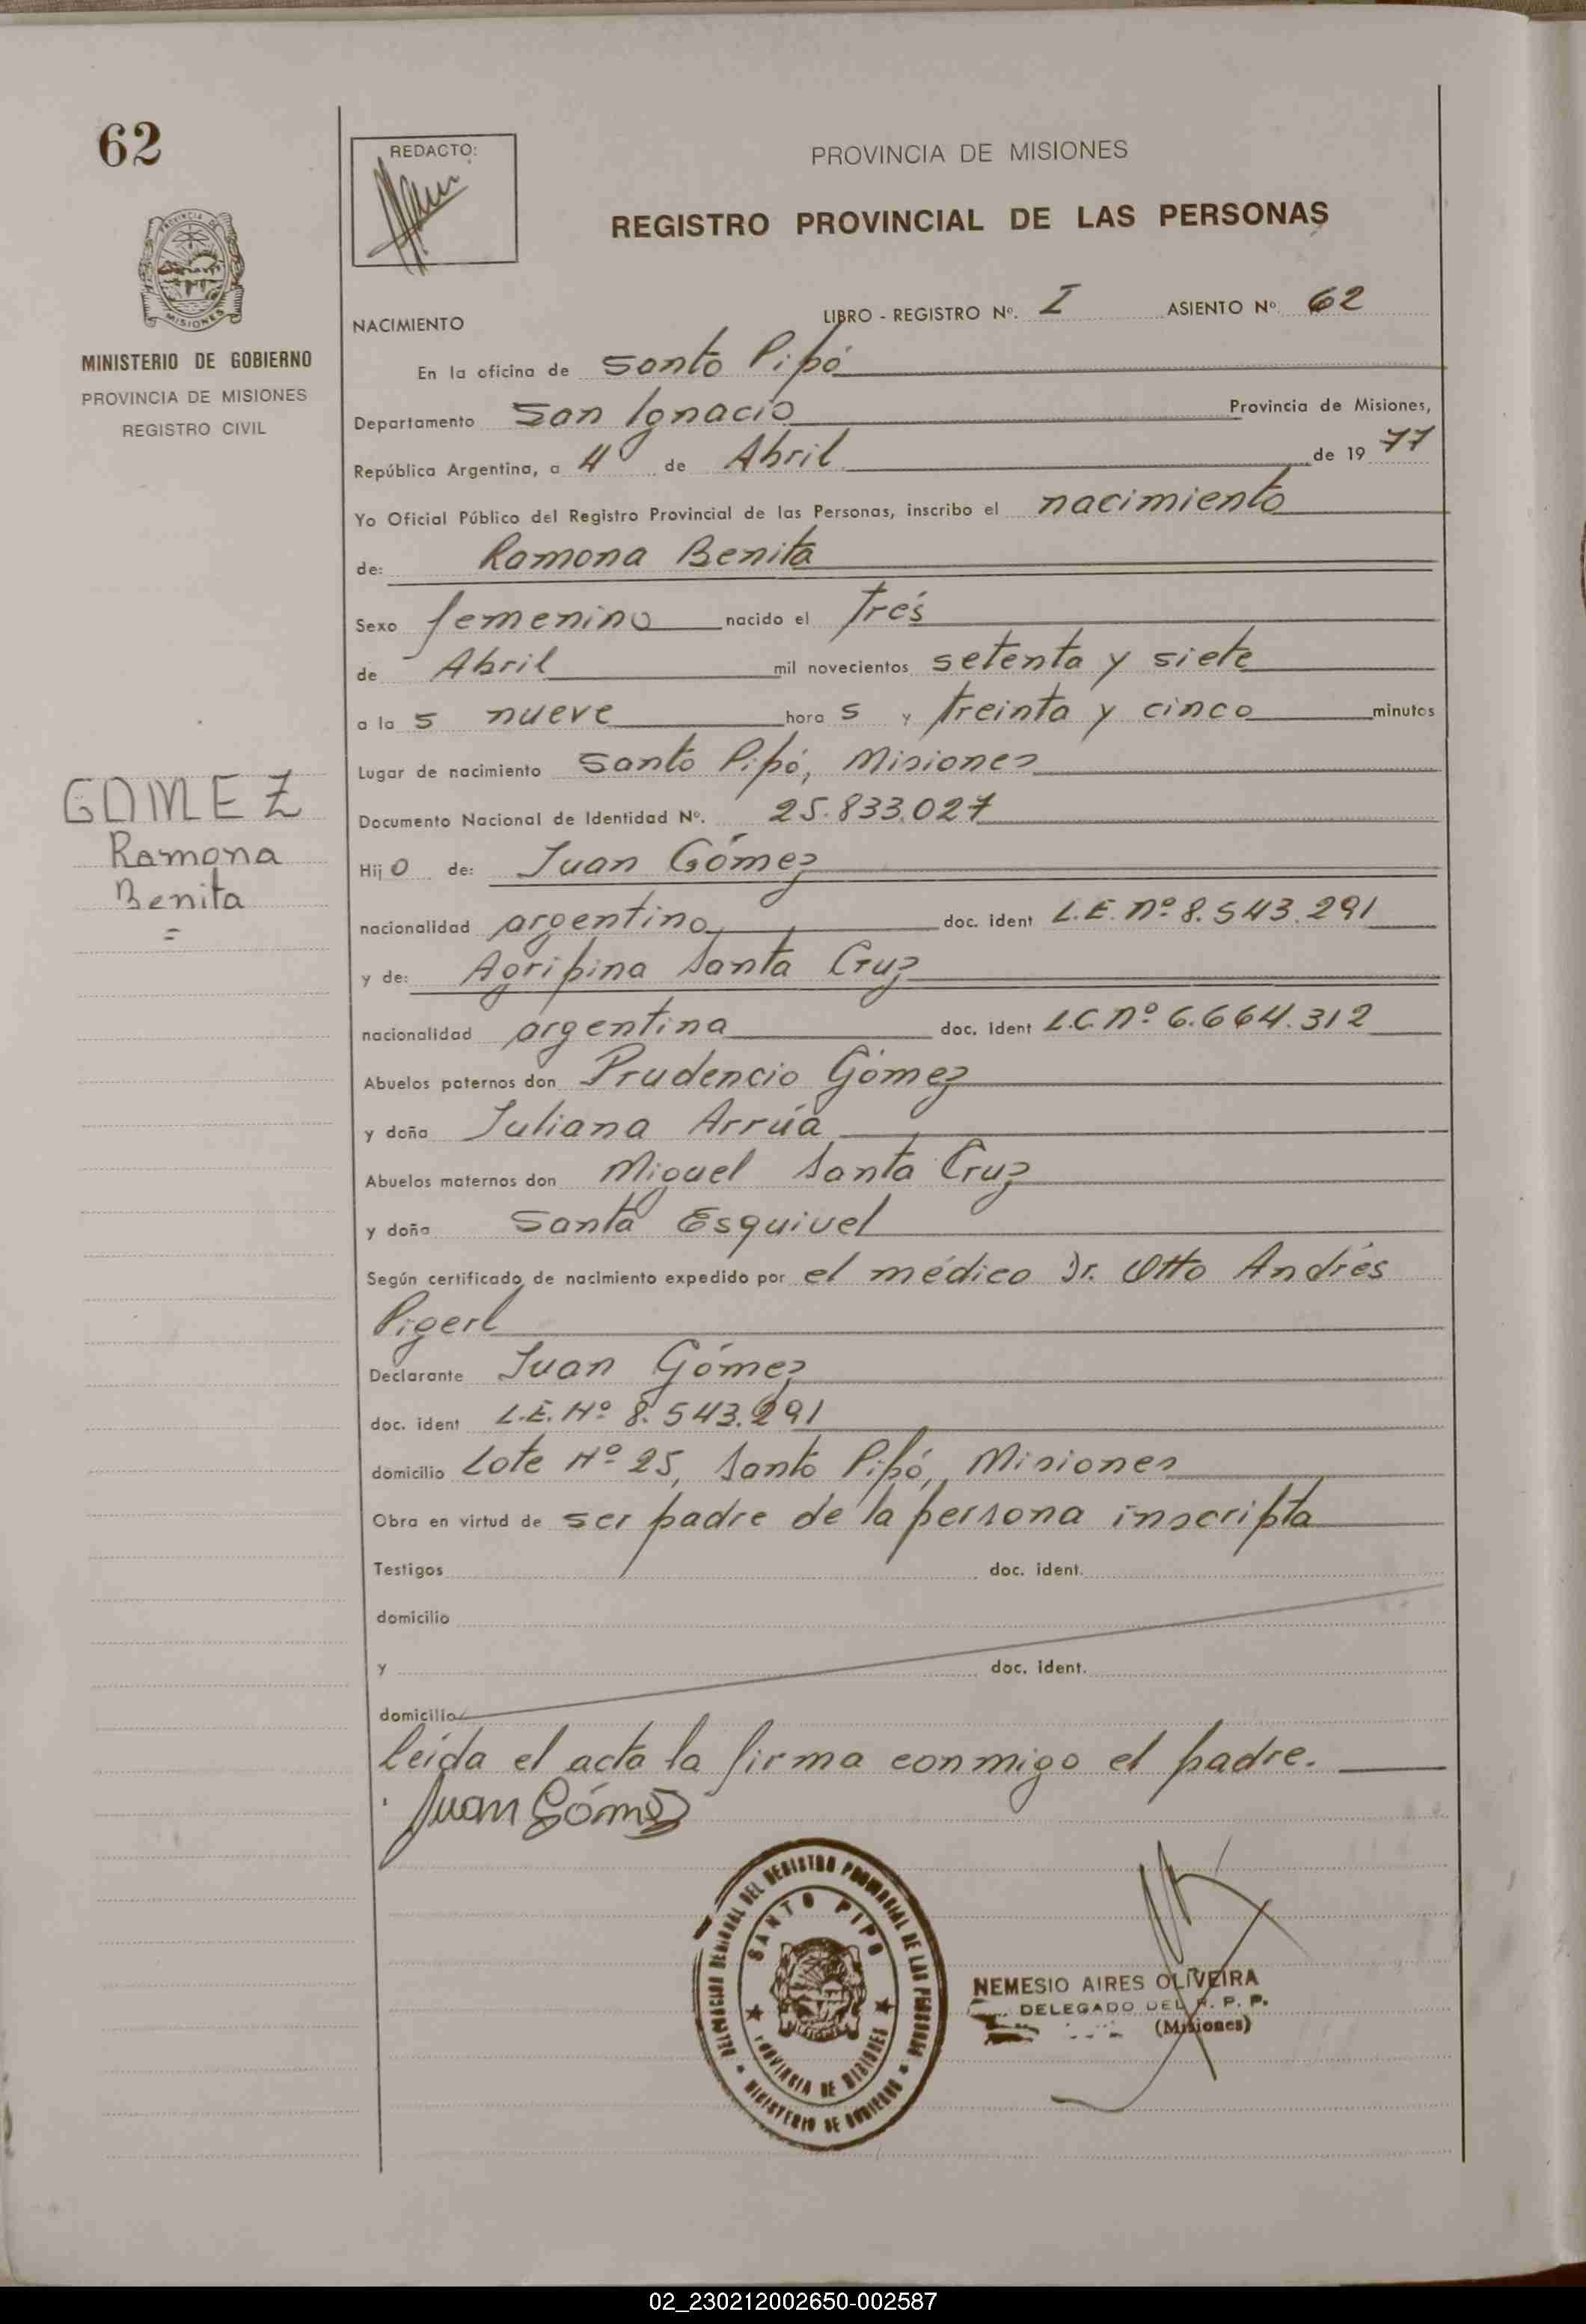 62
REDACTO:
PROVINCIA DE MISIONES
REGISTRO PROVINCIAL DE LAS PERSONAS
PROVINCIA DE
MISIONES
MINISTERIO DE GOBIERNO
PROVINCIA DE MISIONES
REGISTRO CIVIL
NACIMIENTO
LIBRO - REGISTRO Nº. I ASIENTO Nº 62
En la oficina de Santo Pipó
Departamento San Ignacio Provincia de Misiones,
República Argentina, a 4 de Abril de 19 77
Yo Oficial Público del Registro Provincial de las Personas, inscribo el nacimiento
de: Ramona Benita
Sexo femenino nacido el Trés
de Abril mil novecientos setenta y siete
a la s nueve hora s y treinta y cinco minutos
Lugar de nacimiento Santo Pipó, Misiones
GOMEZ
Ramona
Benita
=
Documento Nacional de Identidad Nº. 25.833.027
Hij o de: Juan Gómez
nacionalidad argentino doc. ident L.E. nº 8.543.291
y de: Agripina Santa Cruz
nacionalidad argentina doc. ident L.C. nº 6.664.312
Abuelos paternos don Prudencio Gómez
y doña Juliana Arrúa
Abuelos maternos don Miguel Santa Cruz
y doña Santa Esquivel
Según certificado de nacimiento expedido por el médico Dr. Otto Andrés
Pigerl
Declarante Juan Gómez
doc. ident L.E. Nº 8.543.291
domicilio Lote Nº 25, Santo Pipó, Misiones
Obra en virtud de ser padre de la persona inscripta
Testigos doc. ident.
domicilio
y doc. ident.
domicilio
Leída el acta la firma conmigo el padre.
Juan Gómez
DELEGACION REGIONAL DEL REGISTRO PROVINCIAL DE LAS PERSONAS
SANTO PIPO
PROVINCIA DE MISIONES
MINISTERIO DE GOBIERNO
NEMESIO AIRES OLIVEIRA
DELEGADO DEL R. P. P.
(Misiones)
02_230212002650-002587